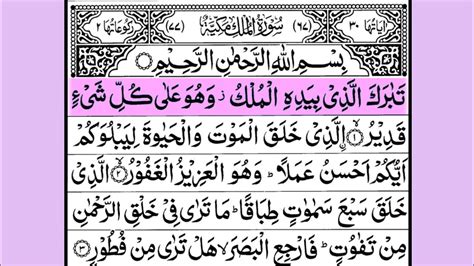 اٰیَاتُهَا ٣٠ (٦٧) سُوْرَةُ الْمُلْكِ مَكِّیَّةٌ (٧٧) رُكُوْعَاتُهَا ٢
بِسْمِ اللّٰهِ الرَّحْمٰنِ الرَّحِیْمِ
تَبٰرَكَ الَّذِیْ بِیَدِهِ الْمُلْكُ ز وَهُوَ عَلٰی كُلِّ شَیْءٍ
قَدِیْرُ ۨ ﴿١﴾ الَّذِیْ خَلَقَ الْمَوْتَ وَالْحَیٰوةَ لِیَبْلُوَكُمْ
اَیُّكُمْ اَحْسَنُ عَمَلًا ؕ وَهُوَ الْعَزِیْزُ الْغَفُوْرُ ﴿٢﴾ الَّذِیْ
خَلَقَ سَبْعَ سَمٰوٰتٍ طِبَاقًا ؕ مَا تَرٰی فِیْ خَلْقِ الرَّحْمٰنِ
مِنْ تَفٰوُتٍ ؕ فَارْجِعِ الْبَصَرَ ۙ هَلْ تَرٰی مِنْ فُطُوْرٍ ﴿٣﴾